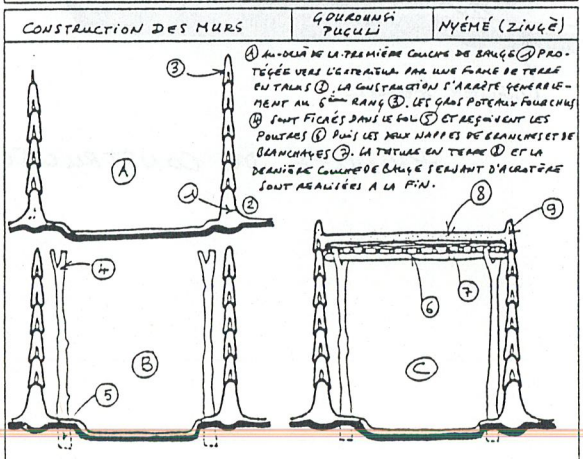 CONSTRUCTION DES MURS
GOUROUNSI
PUGULI
NYÉMÉ (ZINGÈ)
① AU-DELÀ DE LA PREMIÈRE COUCHE DE BAUGE ① PRO-
TÉGÉE VERS L'EXTERIEUR PAR UNE FORME DE TERRE
EN TALUS ②. LA CONSTRUCTION S'ARRÊTE GENERALE-
MENT AU 6ème RANG ③. LES GROS POTEAUX FOURCHUS
④ SONT FICHÉS DANS LE SOL ⑤ ET REÇOIVENT LES
POUTRES ⑥ PUIS LES DEUX NAPPES DE BRANCHES ET DE
BRANCHAGES ⑦. LA TOITURE EN TERRE ⑧ ET LA
DERNIÈRE COUCHE DE BAUGE SERVANT D'ACROTÈRE
SONT REALISÉES A LA FIN.
3
A
1
2
8
9
4
6
7
B
C
5